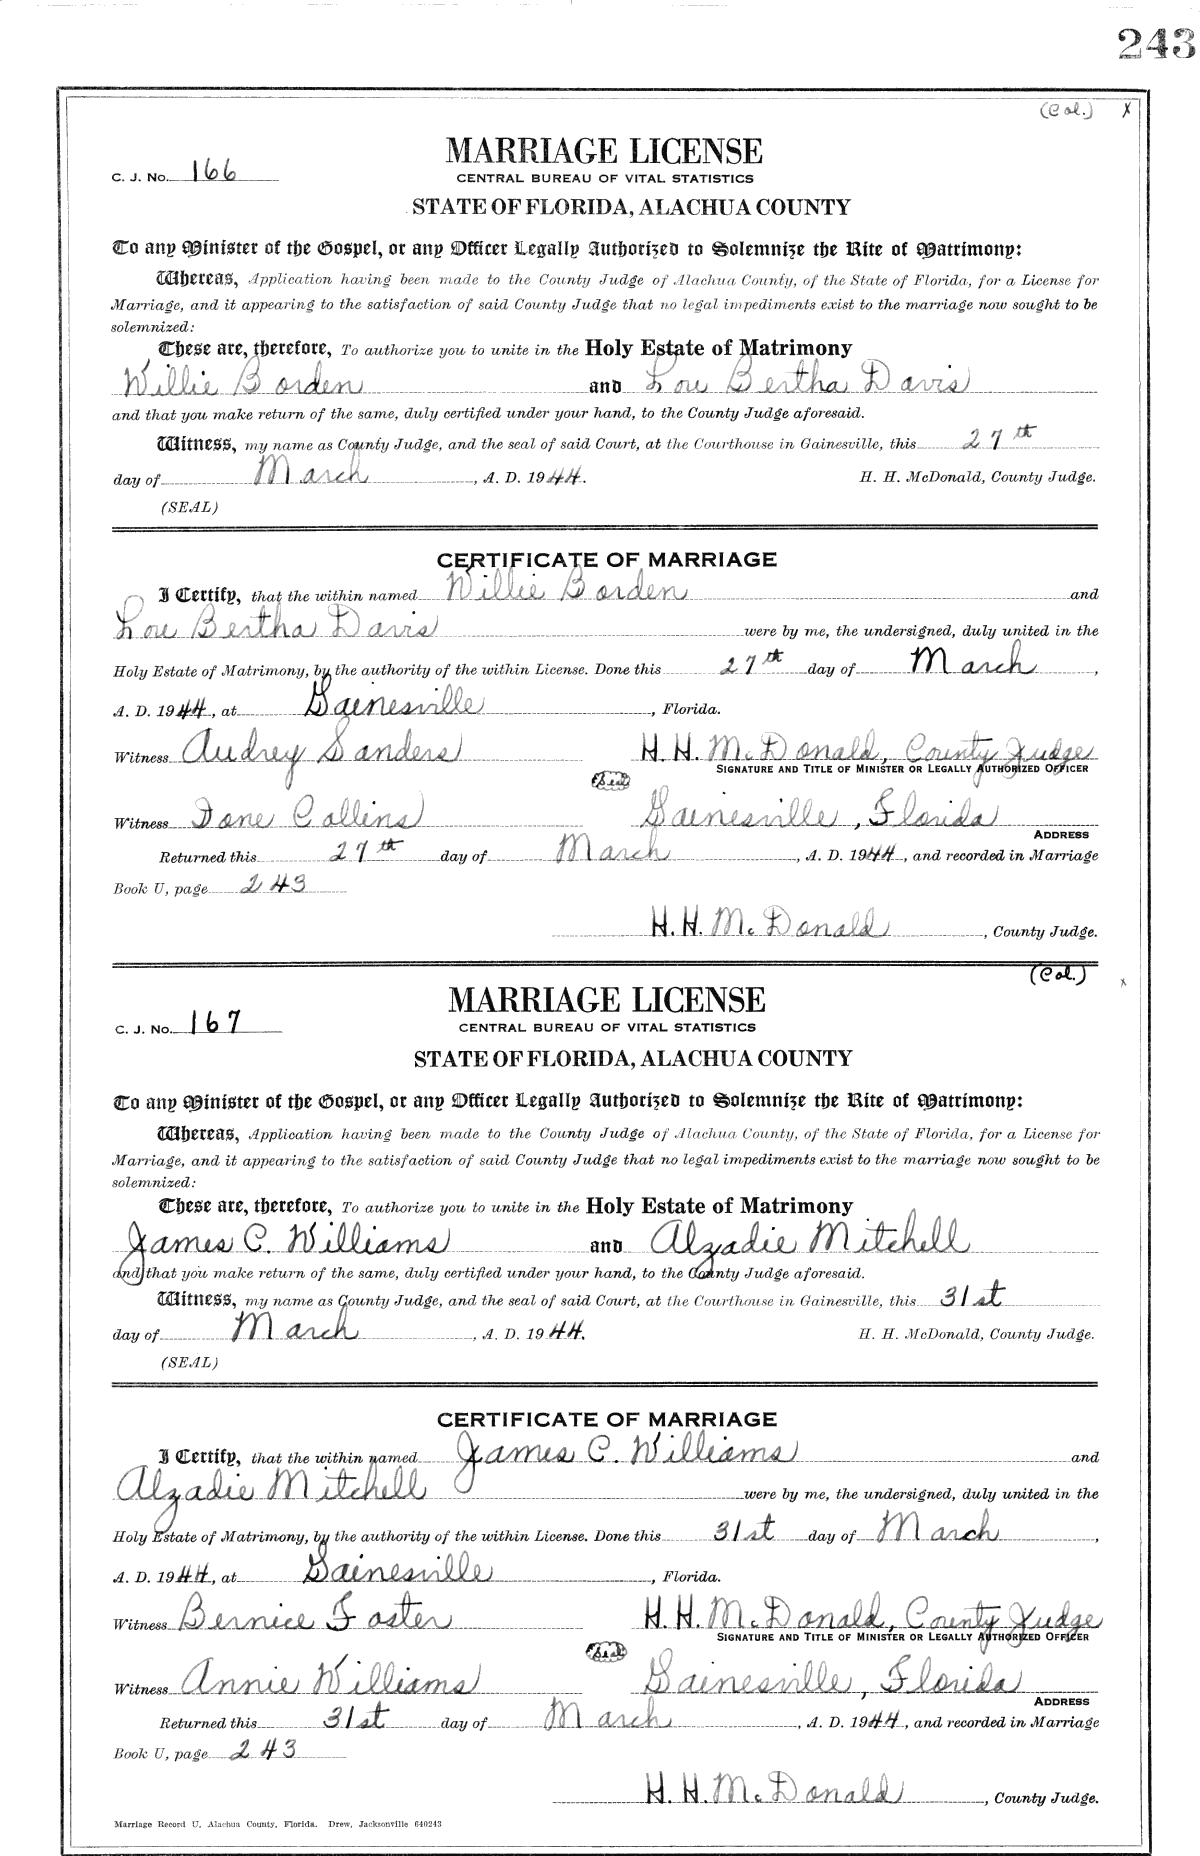 243
(Col.) X
MARRIAGE LICENSE
C. J. No. 166
CENTRAL BUREAU OF VITAL STATISTICS
STATE OF FLORIDA, ALACHUA COUNTY
To any Minister of the Gospel, or any Officer Legally Authorized to Solemnize the Rite of Matrimony:
Whereas, Application having been made to the County Judge of Alachua County, of the State of Florida, for a License for
Marriage, and it appearing to the satisfaction of said County Judge that no legal impediments exist to the marriage now sought to be
solemnized:
These are, therefore, To authorize you to unite in the Holy Estate of Matrimony
Willie Borden and Lou Bertha Davis
and that you make return of the same, duly certified under your hand, to the County Judge aforesaid.
Witness, my name as County Judge, and the seal of said Court, at the Courthouse in Gainesville, this 27th
day of March, A. D. 1944. H. H. McDonald, County Judge.
(SEAL)
CERTIFICATE OF MARRIAGE
I Certify, that the within named Willie Borden and
Lou Bertha Davis were by me, the undersigned, duly united in the
Holy Estate of Matrimony, by the authority of the within License. Done this 27th day of March,
A. D. 1944, at Gainesville, Florida.
Witness Audrey Sanders H. H. McDonald, County Judge
SIGNATURE AND TITLE OF MINISTER OR LEGALLY AUTHORIZED OFFICER
(Seal)
Witness Done Collins Gainesville, Florida
ADDRESS
Returned this 27th day of March, A. D. 1944, and recorded in Marriage
Book U, page 243
H. H. McDonald, County Judge.
(Col.) x
MARRIAGE LICENSE
C. J. No. 167
CENTRAL BUREAU OF VITAL STATISTICS
STATE OF FLORIDA, ALACHUA COUNTY
To any Minister of the Gospel, or any Officer Legally Authorized to Solemnize the Rite of Matrimony:
Whereas, Application having been made to the County Judge of Alachua County, of the State of Florida, for a License for
Marriage, and it appearing to the satisfaction of said County Judge that no legal impediments exist to the marriage now sought to be
solemnized:
These are, therefore, To authorize you to unite in the Holy Estate of Matrimony
James C. Williams and Alzadie Mitchell
and that you make return of the same, duly certified under your hand, to the County Judge aforesaid.
Witness, my name as County Judge, and the seal of said Court, at the Courthouse in Gainesville, this 31st
day of March, A. D. 1944. H. H. McDonald, County Judge.
(SEAL)
CERTIFICATE OF MARRIAGE
I Certify, that the within named James C. Williams and
Alzadie Mitchell were by me, the undersigned, duly united in the
Holy Estate of Matrimony, by the authority of the within License. Done this 31st day of March,
A. D. 1944, at Gainesville, Florida.
Witness Bernice Foster H. H. McDonald, County Judge
SIGNATURE AND TITLE OF MINISTER OR LEGALLY AUTHORIZED OFFICER
(Seal)
Witness Annie Williams Gainesville, Florida
ADDRESS
Returned this 31st day of March, A. D. 1944, and recorded in Marriage
Book U, page 243
H. H. McDonald, County Judge.
Marriage Record U, Alachua County, Florida. Drew, Jacksonville 640243